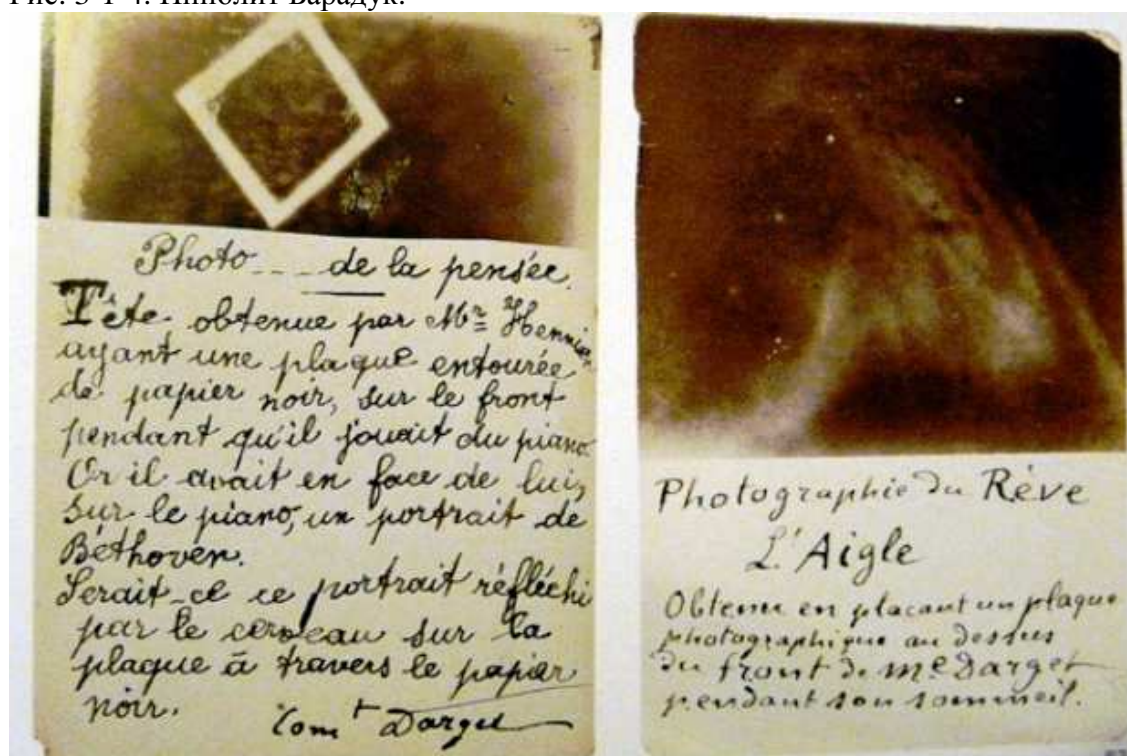 Рис. 3-1-4. Ипполит Барадук.
Photo --- de la pensée.
Tête obtenue par Mr Hennin
ayant une plaque entourée
de papier noir, sur le front
pendant qu'il jouait du piano.
Or il avait en face de lui,
sur le piano, un portrait de
Béthoven.
Serait-ce ce portrait réfléchi
par le cerveau sur la
plaque à travers le papier
noir.
Comt Darget
Photographie du Rêve
L'Aigle
Obtenue en plaçant un plaque
photographique au dessus
du front de Me Darget
pendant son sommeil.